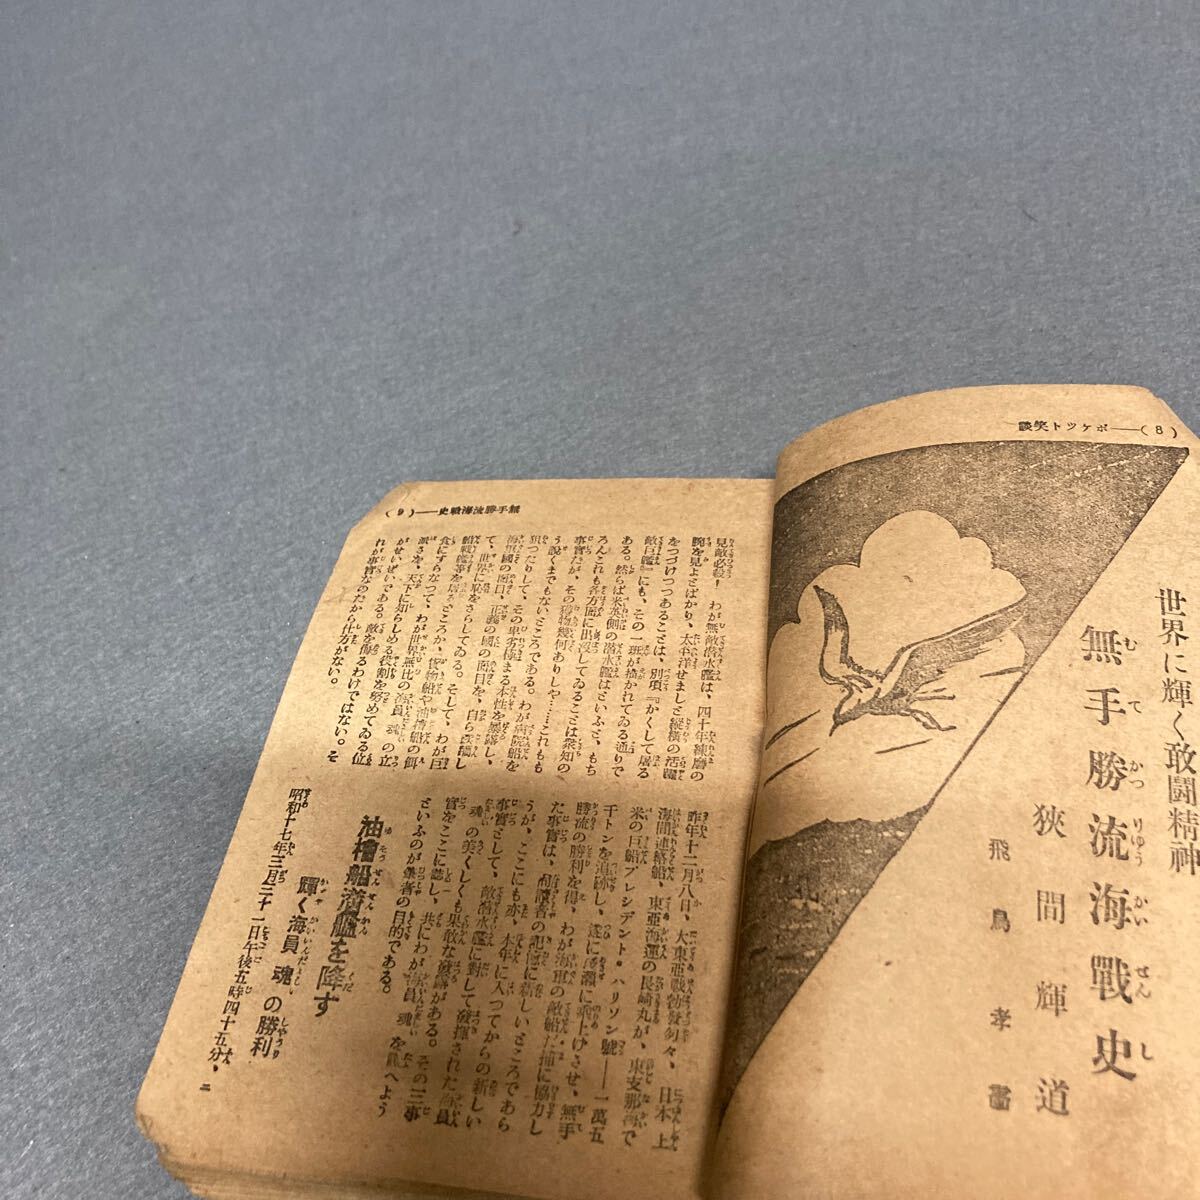 (8)――ポケツト笑談
世界に輝く敢闘精神
無手勝流海戰史
狹間輝道
飛鳥孝畵
無手勝流海戰史――(9)
見敵必殺! わが無敵潜水艦は、四十年練磨の
腕を見よとばかり、太平洋せましと縱横の活躍
をつづけつつあることは、別項『かくして屠る
敵巨艦』にも、その一班が描かれてゐる通りで
ある。然らば米英側の潜水艦はどいふと、もち
ろんこれも各方面に出沒してゐることは衆知の
事實だが、その獲物幾何ありしや……これもも
う説くまでもないところである。わが病院船を
狙つたりして、その卑劣極まる本性を暴露し、
海軍國の面目、正義の國の面目を、自ら
て、世界に恥をさらしてゐる。そして、わが巨
船戰艦等を屠るどころか、貨物船や油槽船の餌
食にすらなつて、わが世界無比の海員魂の立
派さを、天下に知らしめる役割を努めてゐる位
がせいぜいである。敵を侮るわけではない。そ
れが事實なのだから仕方がない。
昨年十二月八日、大東亞戰勃發匆々、日本上
海間連絡船、東亞海運の長崎丸が、東支那海で
米の巨船プレシデント・ハリソン號――一萬五
千トンを追跡し、遂に淺瀬に乘上げさせ、無手
勝流の勝利を得、わが海軍の敵船だ捕に協力し
た事實は、尚讀者の記憶に新しいところであら
うが、ここにも亦、本年に入つてからの新しい
事實として、敵潜水艦に對して發揮された海員
魂の美くしくも果敢な發露がある。その三事
實をここに誌し、共にわが海員魂を讃へよう
といふのが筆者の目的である。
油槽船潜艦を降す
輝く海員魂の勝利
昭和十七年三月三十一日午後五時四十五分、二